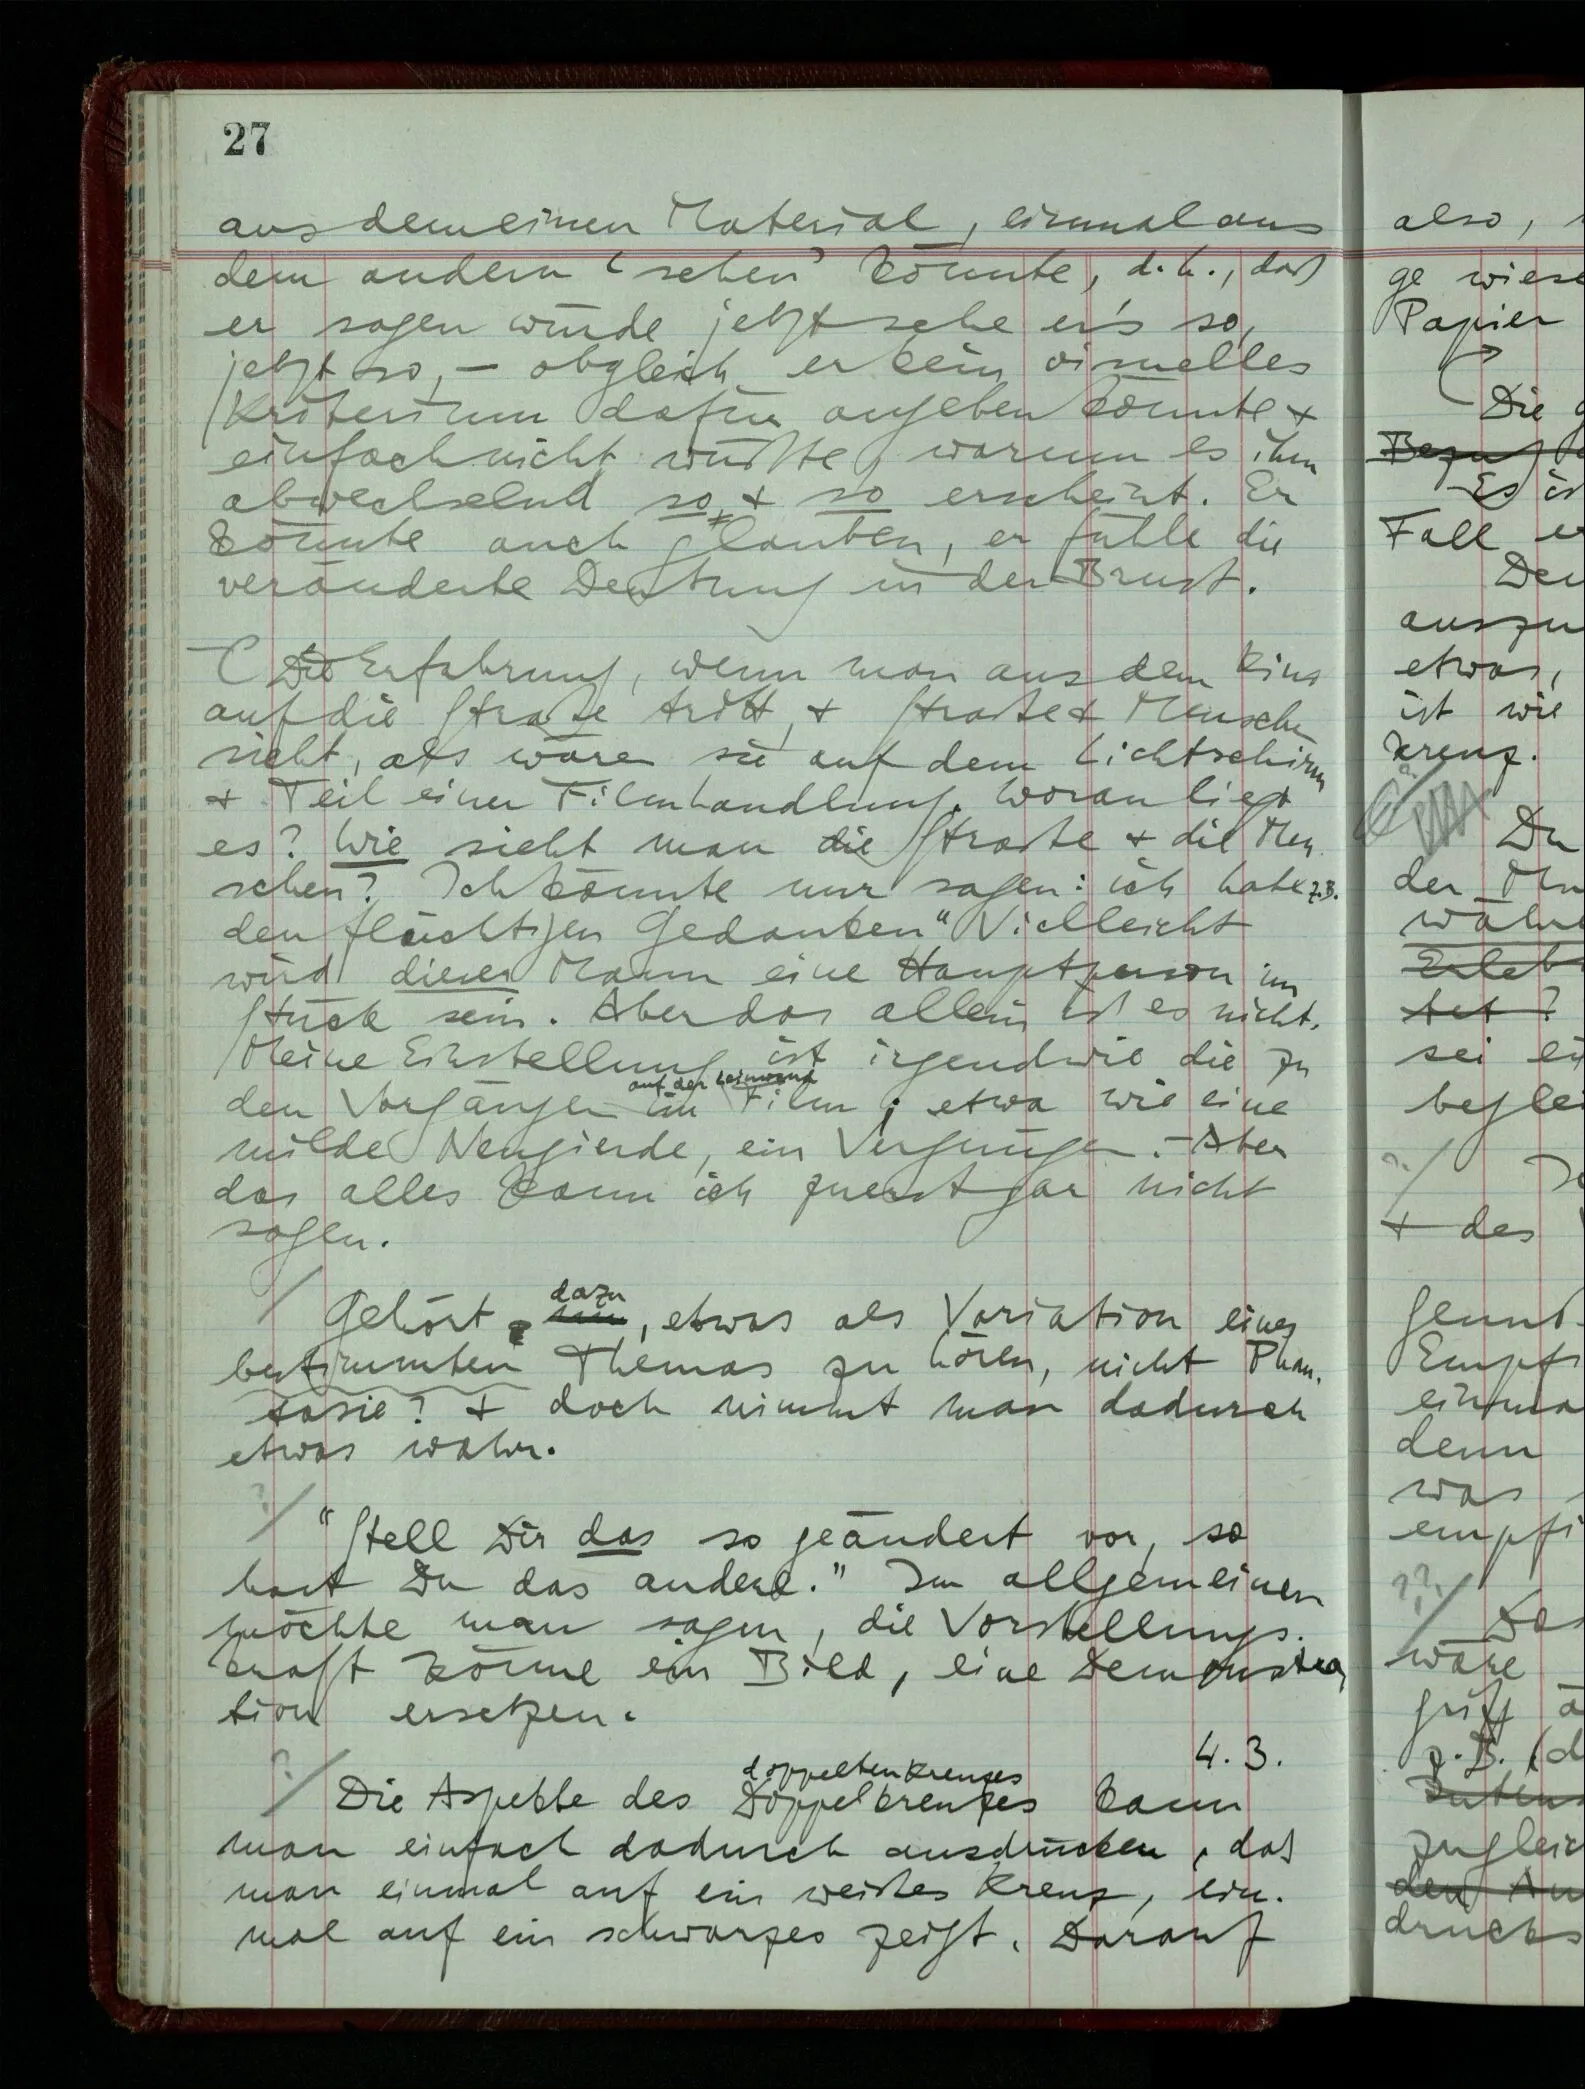 27
aus dem einen Material, einmal aus
dem andern ‘sehen’ könnte, d.h., daß
er sagen würde jetzt sehe er's so,
jetzt so, – obgleich er kein visuelles
Kriterium dafür angeben könnte +
einfach nicht wüßte, warum es ihm
abwechselnd so + so erscheint. Er
könnte auch glauben, er fühle die
veränderte Deutung in der Brust.
Die Erfahrung, wenn man aus dem Kino
auf die Straße tritt, + Straße + Menschen
sieht, als wären sie auf dem Lichtschirm
+ Teil einer Filmhandlung. Woran liegt
es? Wie sieht man die Straße + die Men
schen? Ich könnte nur sagen: ich habe z.B.
den flüchtigen Gedanken “Vielleicht
wird dieser Mann eine Hauptperson im
Stück sein. Aber das allein ist es nicht.
Meine Einstellung ist irgendwie die zu
auf der Leinwand
den Vorgängen im Film; etwa wie eine
milde Neugierde, ein Vergnügen. – Aber
das alles kann ich zuerst gar nicht
sagen.
/
dazu
Gehört, etwas als Variation eines
bestimmten Themas zu hören, nicht Phan-
tasie? + doch nimmt man dadurch
etwas wahr.
?/
“Stell Dir das so geändert vor, so
hast Du das andere.” Im allgemeinen
möchte man sagen, die Vorstellungs-
kraft könne ein Bild, eine Demonstra
tion ersetzen.
4.3.
?/
doppelten Kreuzes
Die Aspekte des Doppelkreuzes kann
man einfach dadurch ausdrücken, daß
man einmal auf ein weißes Kreuz, ein-
mal auf ein schwarzes zeigt. Darauf
also,
ge wiese
Papier
Die
Es is
Fall er
Den
auszu
etwas,
ist wie
kreuz.
Du
der
währe
sei ei
beglei
?/
+ des
genust
Empfi
einma
denn
was
empfi
??/
Das
wäre
griff ä
z.B. (d
zugleich
den
drucks